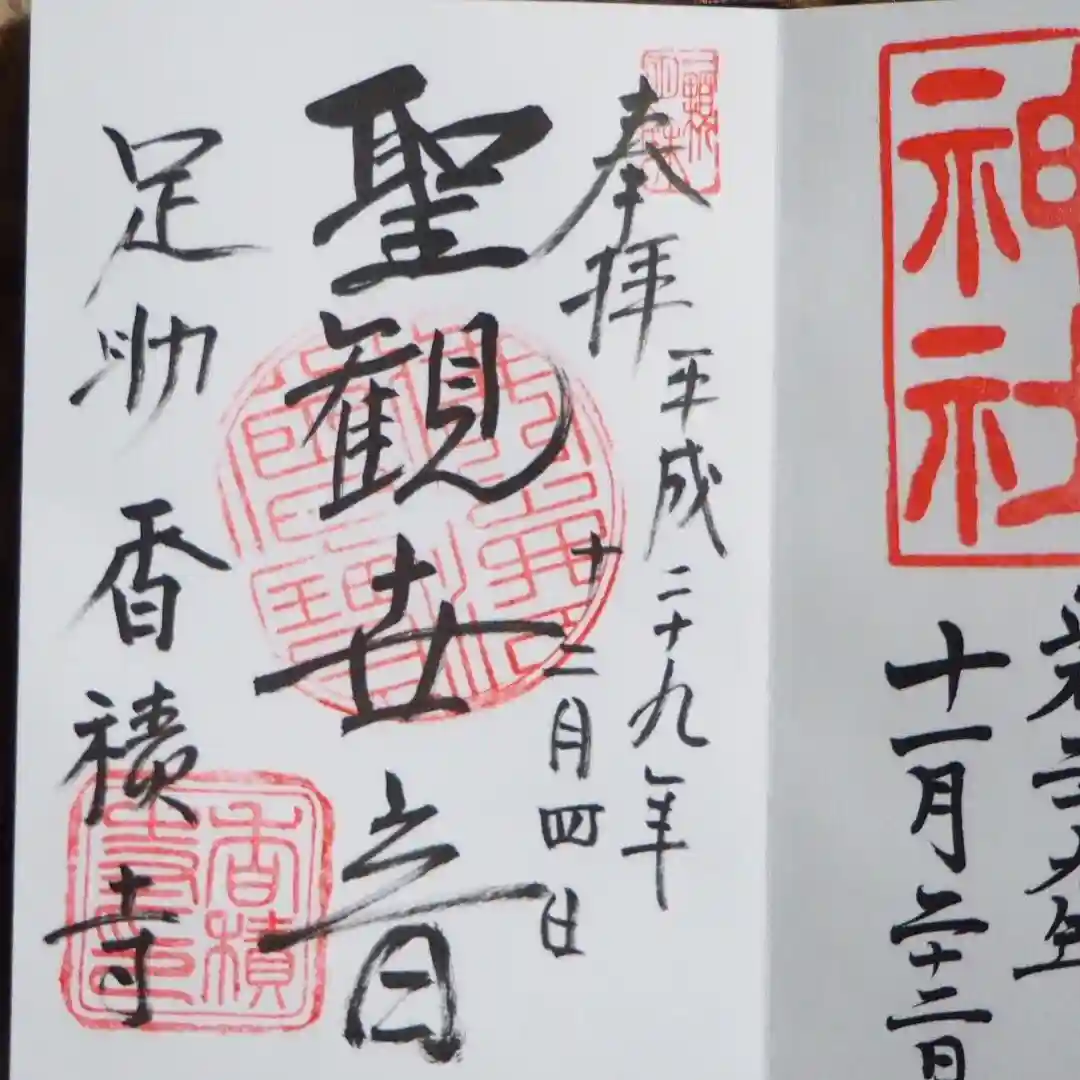 神社
成二十九年
十一月二十二日
奉拝
平成二十九年
十二月四日
聖観世音
足助 香積寺
香積寺印